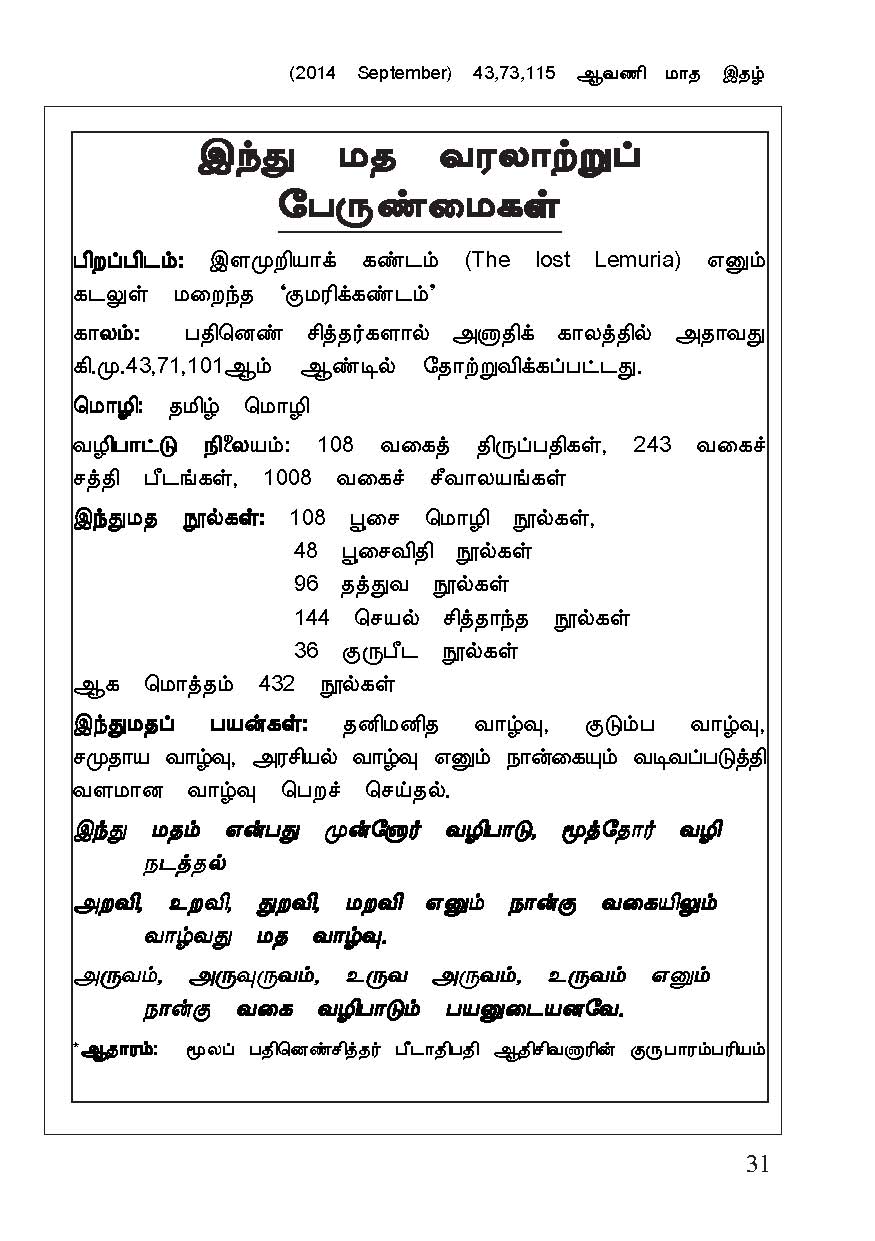 (2014 September) 43,73,115 ஆவணி மாத இதழ்
இந்து மத வரலாற்றுப்
பேருண்மைகள்
பிறப்பிடம்: இளமுறியாக் கண்டம் (The lost Lemuria) எனும்
கடலுள் மறைந்த ‘குமரிக்கண்டம்’
காலம்: பதினெண் சித்தர்களால் அனாதிக் காலத்தில் அதாவது
கி.மு.43,71,101ஆம் ஆண்டில் தோற்றுவிக்கப்பட்டது.
மொழி: தமிழ் மொழி
வழிபாட்டு நிலையம்: 108 வகைத் திருப்பதிகள், 243 வகைச்
சத்தி பீடங்கள், 1008 வகைச் சீவாலயங்கள்
இந்துமத நூல்கள்: 108 பூசை மொழி நூல்கள்,
48 பூசைவிதி நூல்கள்
96 தத்துவ நூல்கள்
144 செயல் சித்தாந்த நூல்கள்
36 குருபீட நூல்கள்
ஆக மொத்தம் 432 நூல்கள்
இந்துமதப் பயன்கள்: தனிமனித வாழ்வு, குடும்ப வாழ்வு,
சமுதாய வாழ்வு, அரசியல் வாழ்வு எனும் நான்கையும் வடிவப்படுத்தி
வளமான வாழ்வு பெறச் செய்தல்.
இந்து மதம் என்பது முன்னோர் வழிபாடு, மூத்தோர் வழி
நடத்தல்
அறவி, உறவி, துறவி, மறவி எனும் நான்கு வகையிலும்
வாழ்வது மத வாழ்வு.
அருவம், அருவுருவம், உருவ அருவம், உருவம் எனும்
நான்கு வகை வழிபாடும் பயனுடையனவே.
*ஆதாரம்: மூலப் பதினெண்சித்தர் பீடாதிபதி ஆதிசிவனாரின் குருபாரம்பரியம்
31